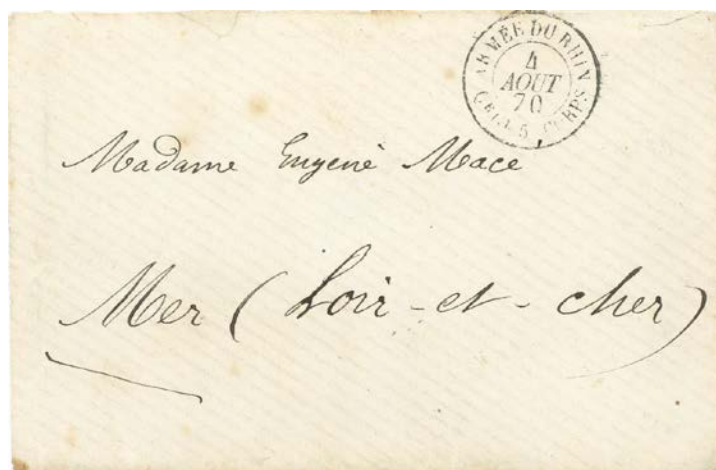 ARMÉE DU RHIN
4
AOUT
70
5 CORPS
Madame Eugène Mace
Mer (Loir-et-cher)